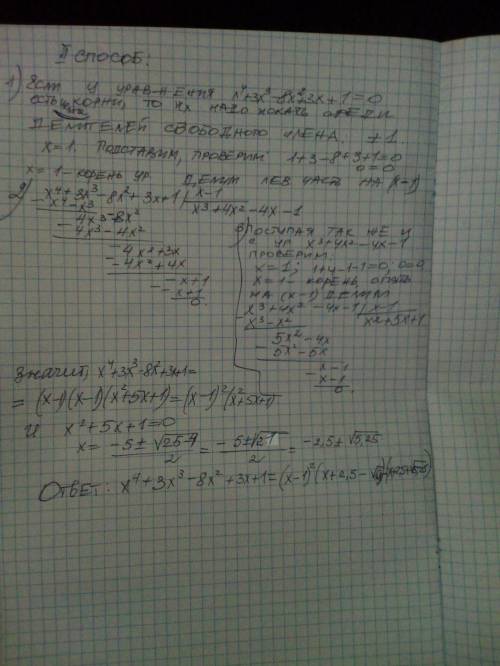 II СПОСОБ:
1) Если у уравнения x⁴+3x³-8x²+3x+1=0
есть целые корни, то их надо искать среди
делителей свободного члена: ±1.
x=1. Подставим, проверим 1+3-8+3+1=0
0=0
x=1- корень ур. Делим лев часть на (x-1)
2) x⁴+3x³-8x²+3x+1 | x-1
x⁴-x³ x³+4x²-4x-1
4x³-8x²
4x³-4x²
-4x²+3x
-4x²+4x
-x+1
-x+1
0.
3) Поступая так же и
с ур x³+4x²-4x-1
проверим:
x=1; 1+4-4-1=0; 0=0
x=1- корень, опять
на (x-1) делим
x³+4x²-4x-1 | x-1
x³-x² x²+5x+1
5x²-4x
5x²-5x
x-1
x-1
0.
Значит, x⁴+3x³-8x²+3x+1=
= (x-1)(x-1)(x²+5x+1)=(x-1)²(x²+5x+1)
И x²+5x+1=0
x= -5±√25-4/2 = -5±√21/2 = -2,5±√5,25
Ответ: x⁴+3x³-8x²+3x+1=(x-1)²(x+2,5-